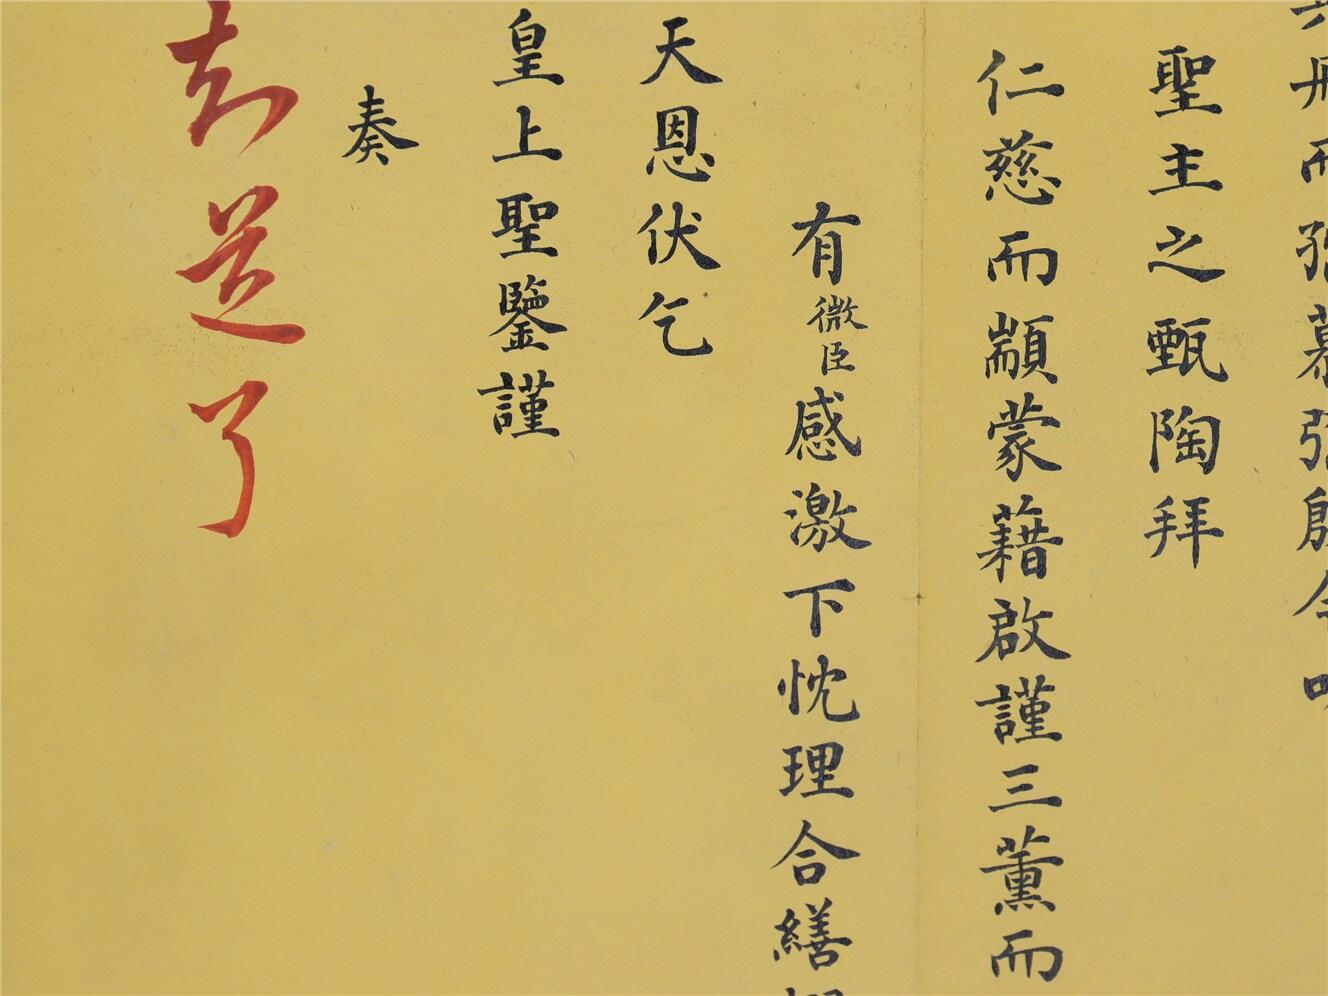 聖主之甄陶拜
仁慈而顓蒙藉啟謹三薰而
有微臣感激下忱理合繕
天恩伏乞
皇上聖鑒謹
奏
知道了